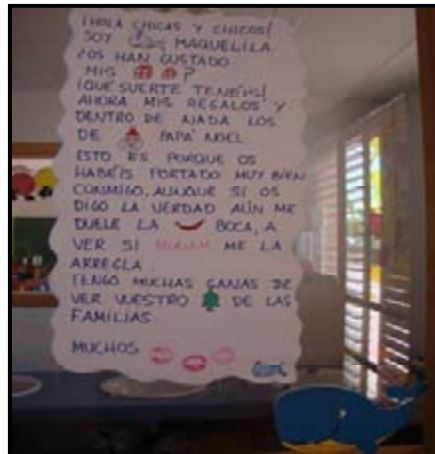 ¡HOLA CHICAS Y CHICOS!
SOY MAQUELILA
¿OS HAN GUSTADO
MIS ?
¡QUE SUERTE TENÉIS!
AHORA MIS REGALOS Y
DENTRO DE NADA LOS
DE PAPÁ NOEL
ESTO ES PORQUE OS
HABÉIS PORTADO MUY BIEN
CONMIGO. AUNQUE SI OS
DIGO LA VERDAD AÚN ME
DUELE LA BOCA, A
VER SI MIRIAM ME LA
ARREGLA
TENGO MUCHAS GANAS DE
VER VUESTRO DE LAS
FAMILIAS
MUCHOS